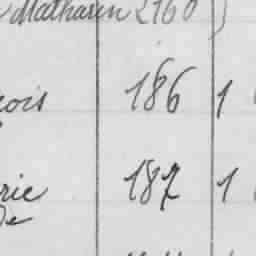 Mathurin 2160 }
çois 186 1
rie 187 1
de